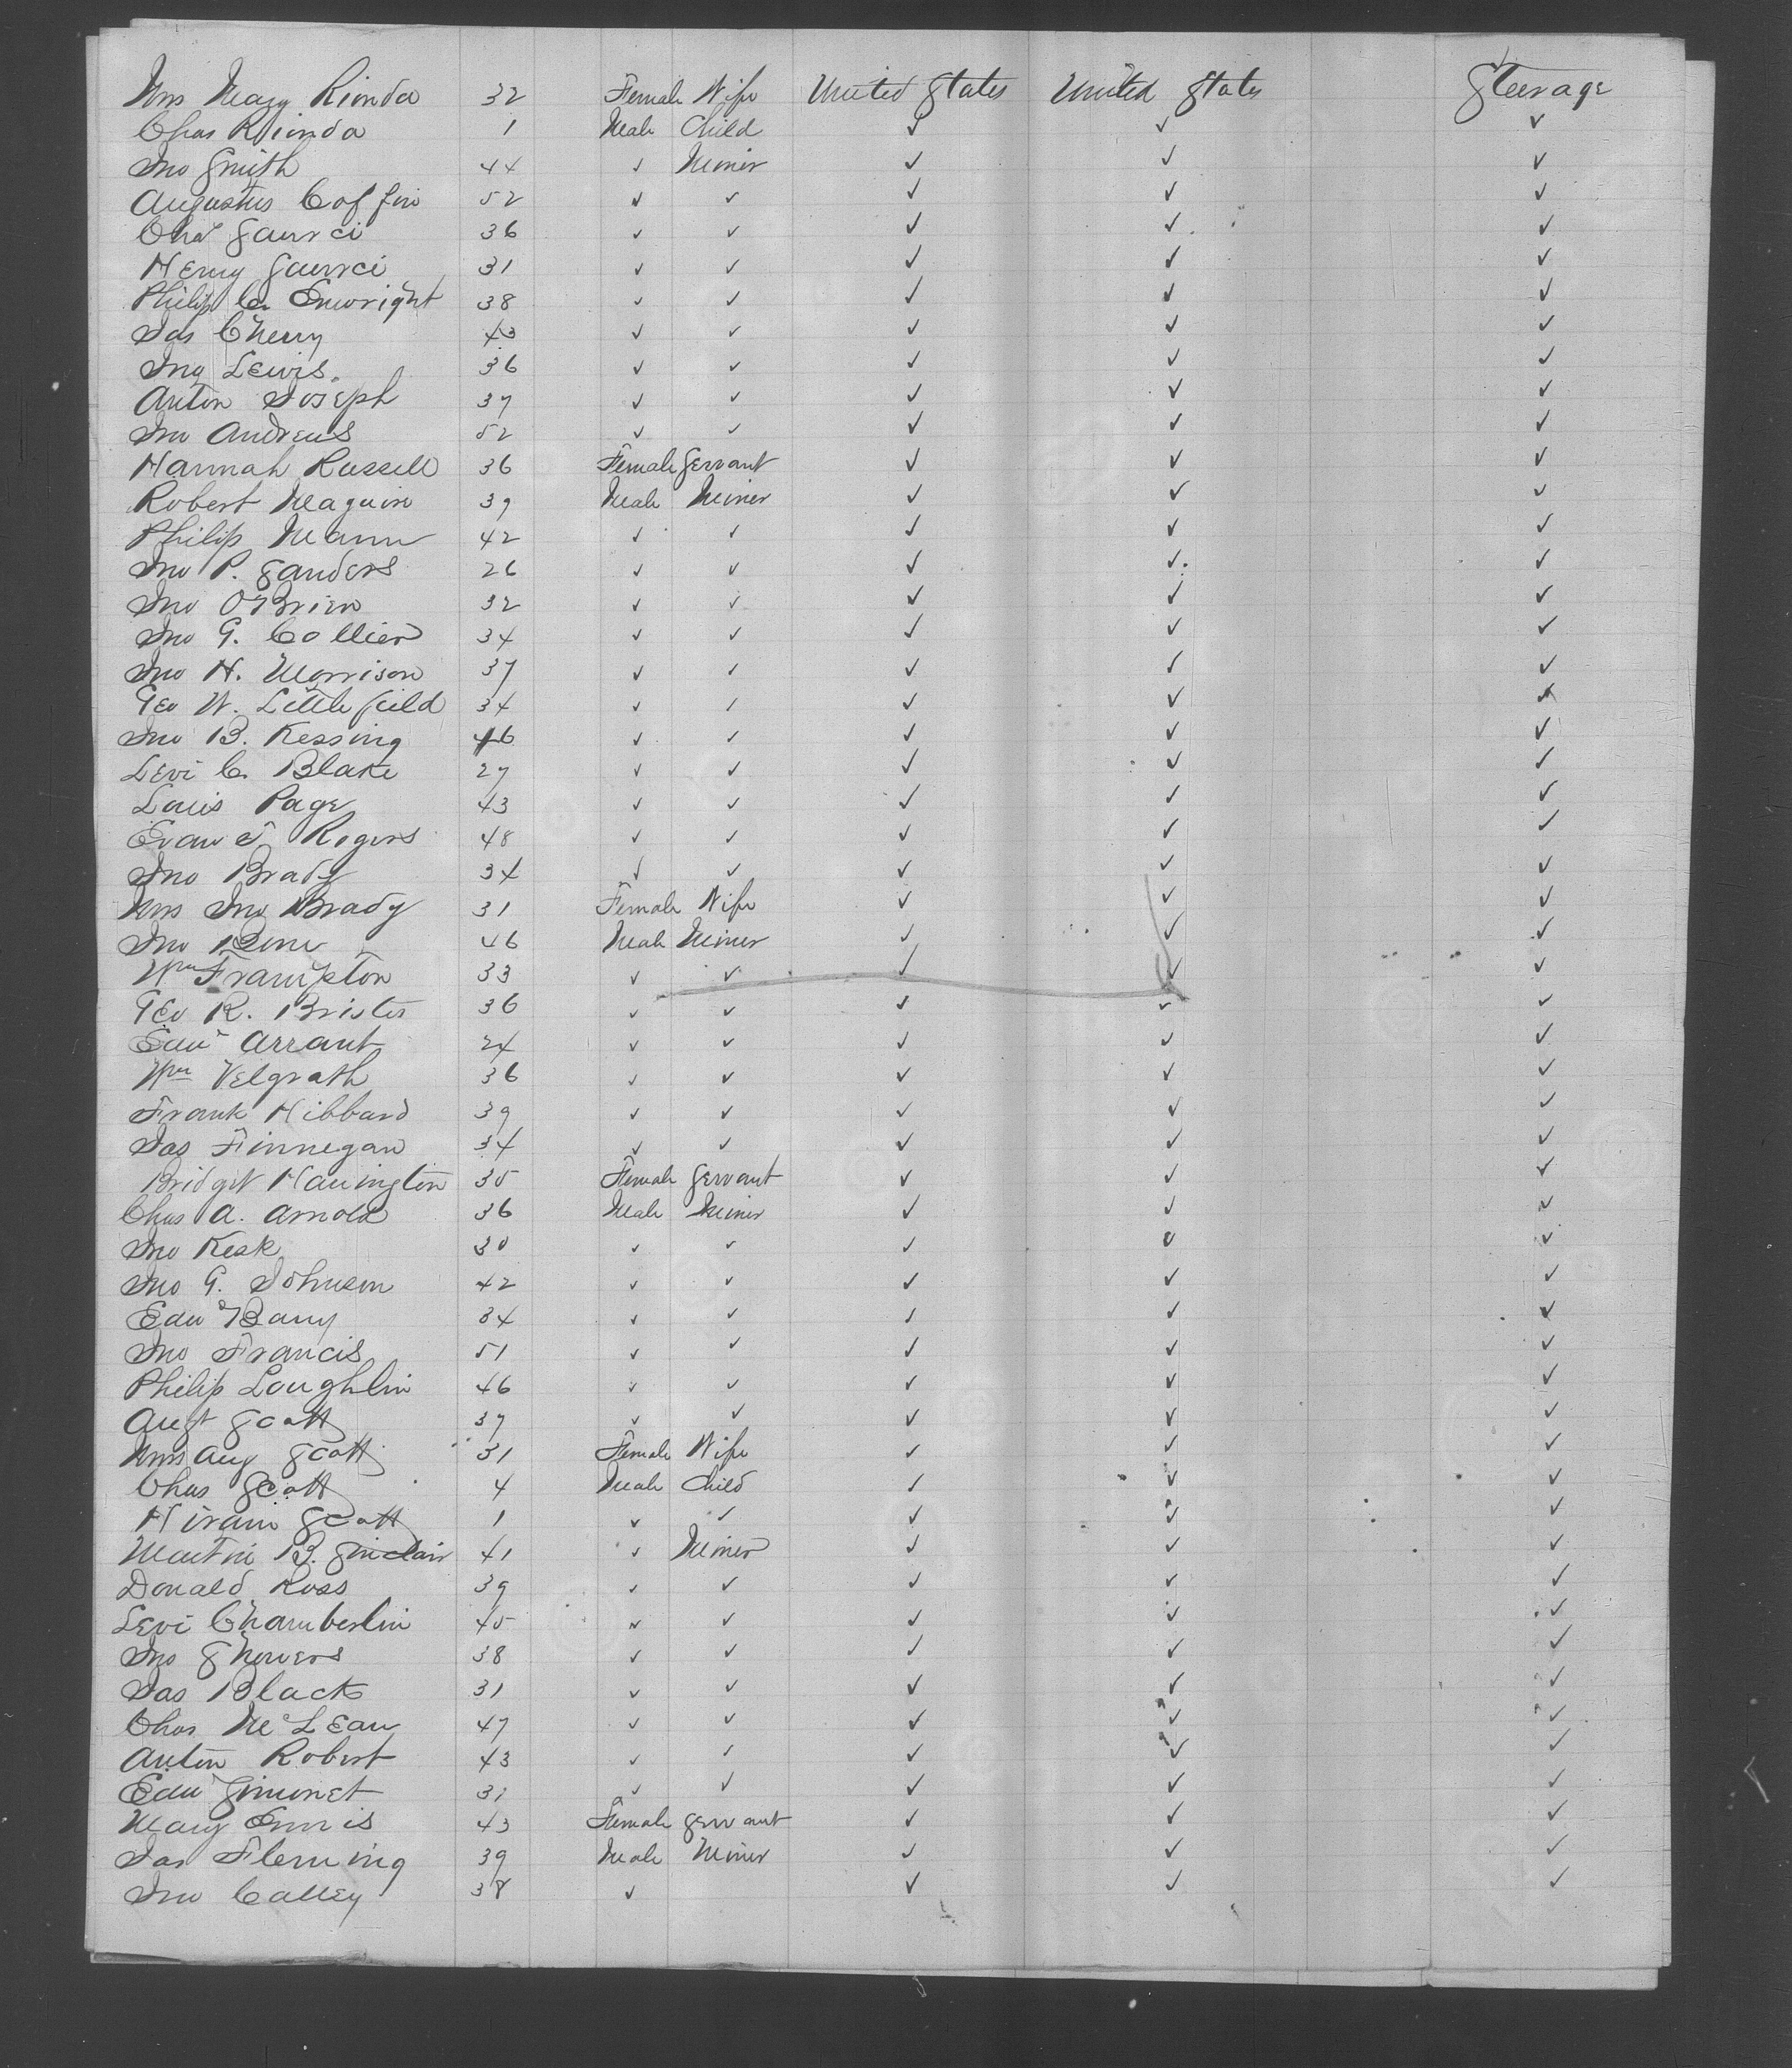 Mrs Mary Rionda 32 Female Wife United States United States Steerage
Chas Rionda 1 Male Child ✓ ✓ ✓
Jno Smith 44 ✓ Miner ✓ ✓ ✓
Augustus Coffin 52 ✓ ✓ ✓ ✓ ✓
Chas 36 ✓ ✓ ✓ ✓ ✓
Henry 31 ✓ ✓ ✓ ✓ ✓
Philip C. Enwright 38 ✓ ✓ ✓ ✓ ✓
Jas Cherry 43 ✓ ✓ ✓ ✓ ✓
Jno Lewis. 36 ✓ ✓ ✓ ✓ ✓
Anton Joseph 37 ✓ ✓ ✓ ✓ ✓
Jno Andrews 52 ✓ ✓ ✓ ✓ ✓
Hannah Russell 36 Female Servant ✓ ✓ ✓
Robert Maguire 39 Male Miner ✓ ✓ ✓
Philip Mann 42 ✓ ✓ ✓ ✓ ✓
Jno P. Sanders 26 ✓ ✓ ✓ ✓ ✓
Jno O'Brien 32 ✓ ✓ ✓ ✓ ✓
Jno G. Collier 34 ✓ ✓ ✓ ✓ ✓
Jno H. Morrison 37 ✓ ✓ ✓ ✓ ✓
Geo W. Littlefield 34 ✓ ✓ ✓ ✓ ✓
Jno B. Kessing 46 ✓ ✓ ✓ ✓ ✓
Levi C. Blake 27 ✓ ✓ ✓ ✓ ✓
Louis Page 43 ✓ ✓ ✓ ✓ ✓
Evan J. Rogers 48 ✓ ✓ ✓ ✓ ✓
Jno Brady 34 ✓ ✓ ✓ ✓ ✓
Mrs Jno Brady 31 Female Wife ✓ ✓ ✓
Jno 46 Male Miner ✓ ✓ ✓
Wm Frampton 33 ✓ ✓ ✓ ✓ ✓
Geo R. Brister 36 ✓ ✓ ✓ ✓ ✓
Edwd Arrant 24 ✓ ✓ ✓ ✓ ✓
Wm Velgrath 36 ✓ ✓ ✓ ✓ ✓
Frank Hibbard 39 ✓ ✓ ✓ ✓ ✓
Jas Finnegan 34 ✓ ✓ ✓ ✓ ✓
Bridget Harrington 35 Female Servant ✓ ✓ ✓
Chas A. Arnold 36 Male Miner ✓ ✓ ✓
Jno Kesk 30 ✓ ✓ ✓ ✓ ✓
Jno G. Johnson 42 ✓ ✓ ✓ ✓ ✓
Edwd Barry 34 ✓ ✓ ✓ ✓ ✓
Jno Francis 51 ✓ ✓ ✓ ✓ ✓
Philip Loughlin 46 ✓ ✓ ✓ ✓ ✓
Augt Scott 37 ✓ ✓ ✓ ✓ ✓
Mrs Aug Scott 31 Female Wife ✓ ✓ ✓
Chas Scott 4 Male Child ✓ ✓ ✓
Hiram Scott 1 ✓ ✓ ✓ ✓ ✓
Martin B. Sinclair 41 ✓ Miner ✓ ✓ ✓
Donald Ross 39 ✓ ✓ ✓ ✓ ✓
Levi Chamberlin 45 ✓ ✓ ✓ ✓ ✓
Jno Showers 38 ✓ ✓ ✓ ✓ ✓
Jas Black 31 ✓ ✓ ✓ ✓ ✓
Chas McLean 47 ✓ ✓ ✓ ✓ ✓
Anton Robert 43 ✓ ✓ ✓ ✓ ✓
Edwd Simonet 31 ✓ ✓ ✓ ✓ ✓
Mary Ennis 43 Female Servant ✓ ✓ ✓
Jas Fleming 39 Male Miner ✓ ✓ ✓
Jno Calley 38 ✓ ✓ ✓ ✓